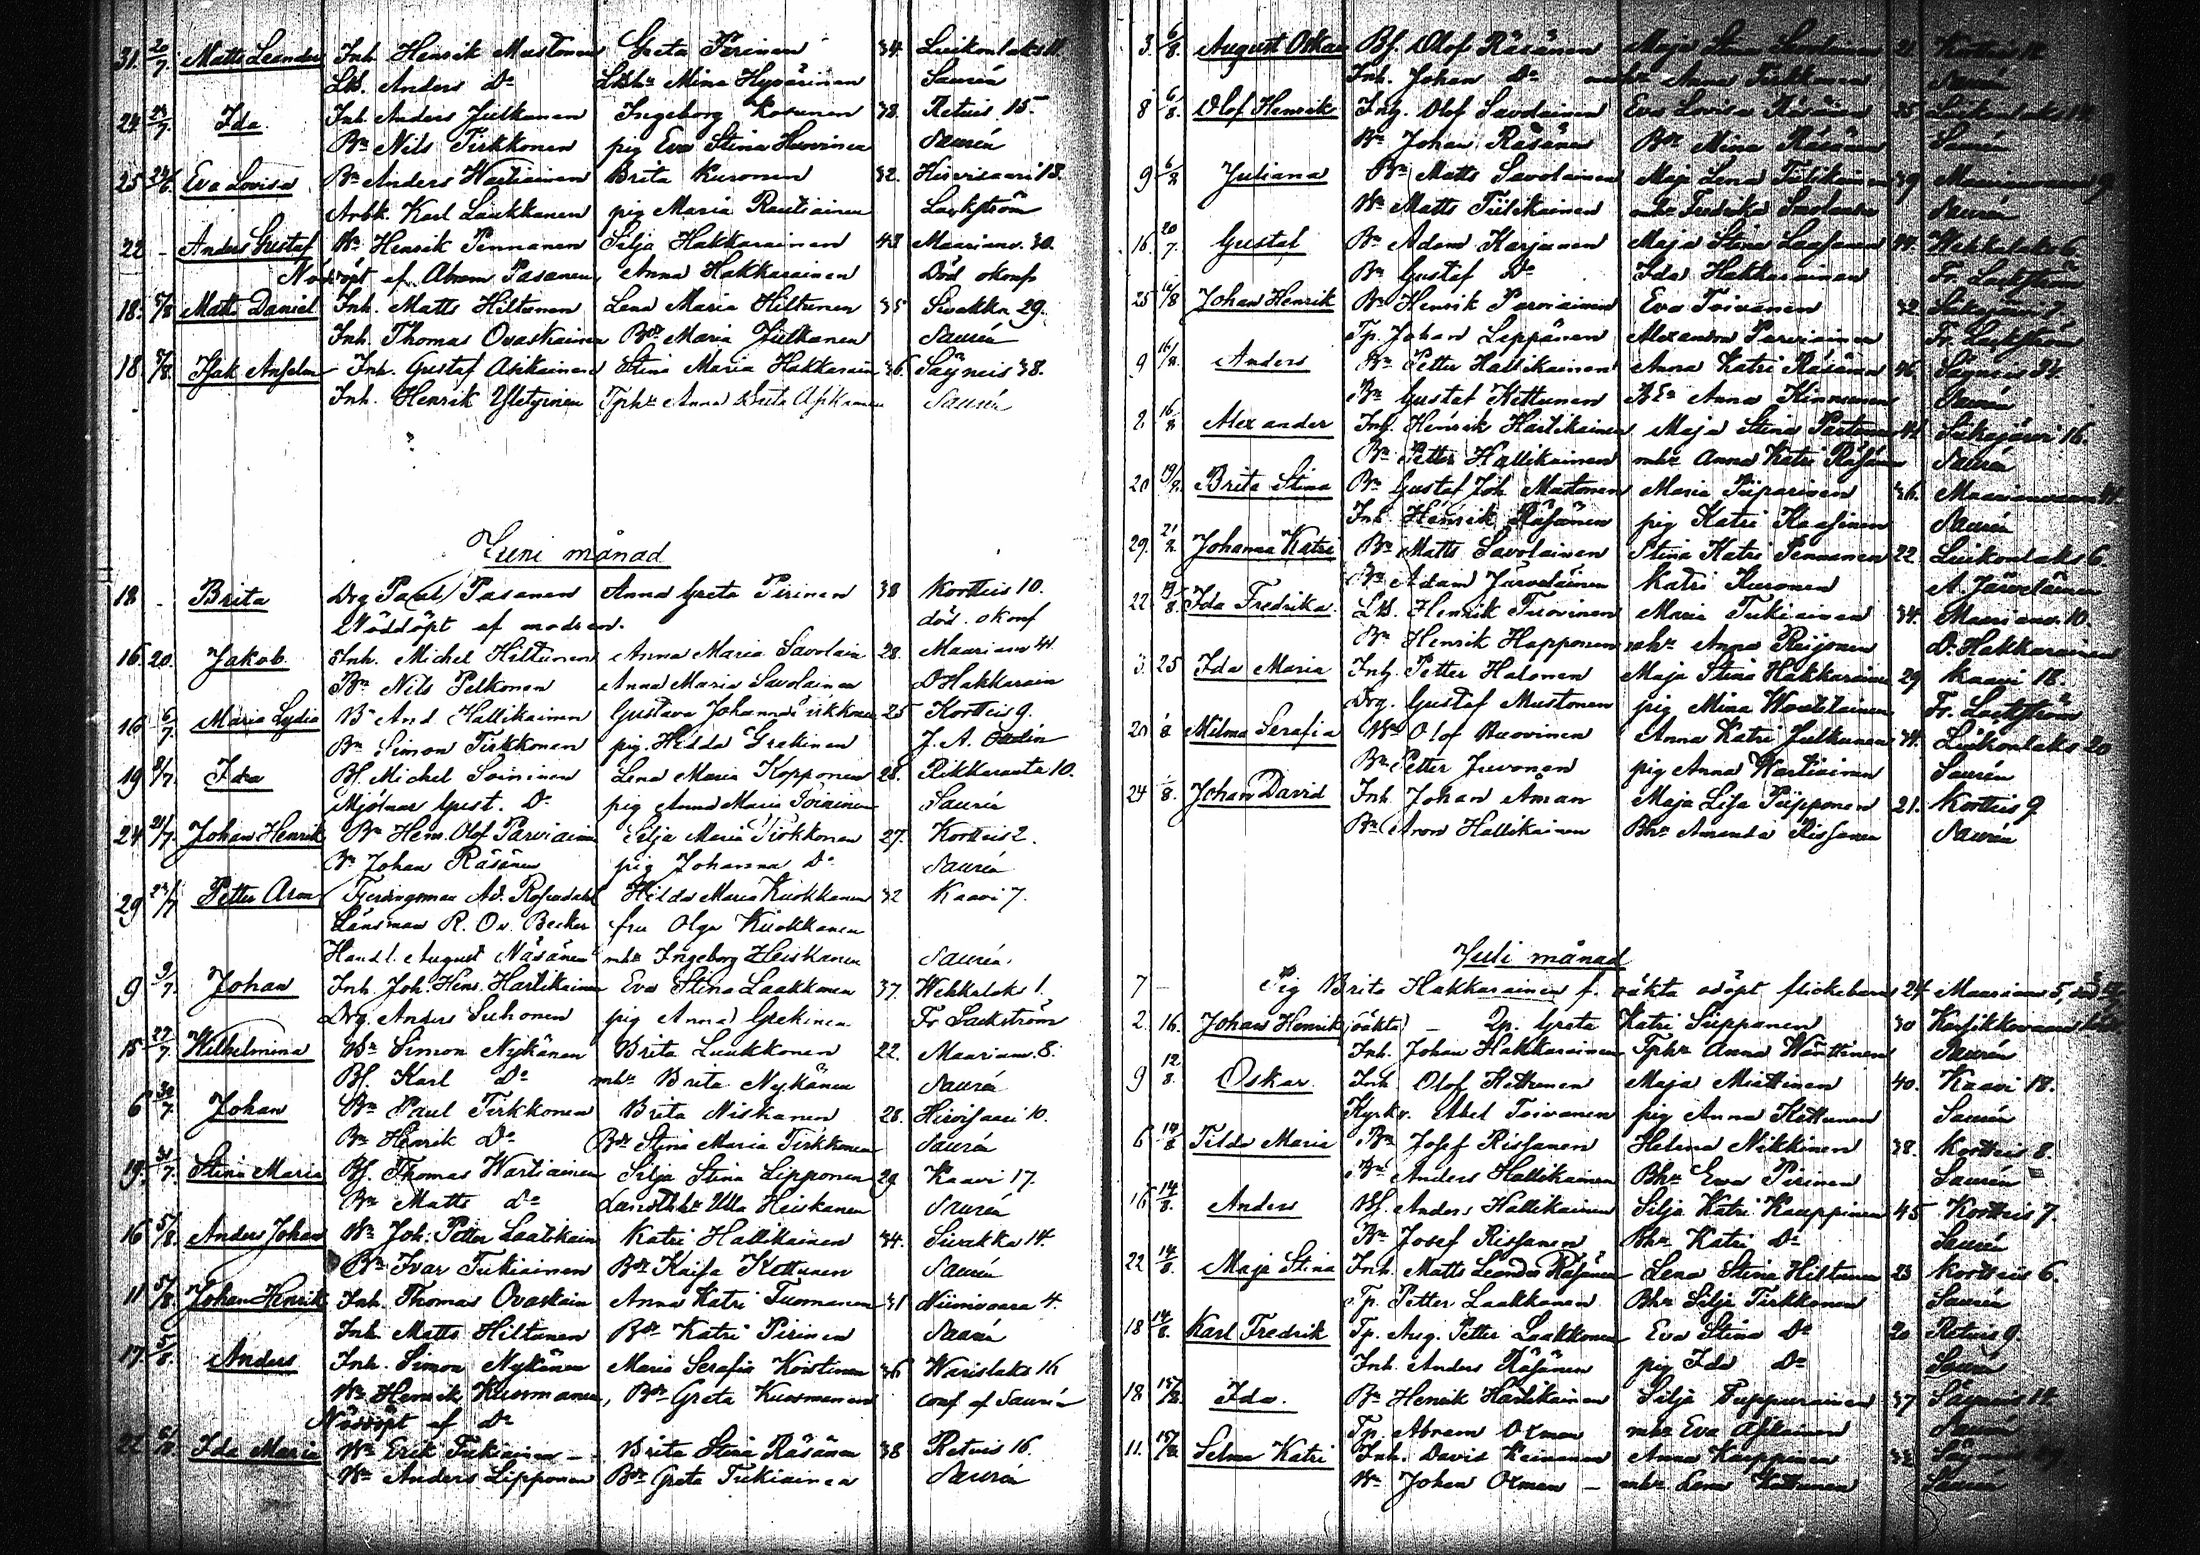 31. 20/7. Matts Leander Inh. Henrik Mustonen Greta Pirinen 34. Luikonlaks 11.
Lbd. Anders Do Mina Hyvärinen Saurén
24 24/7. Ida. Inh. Anders Julkunen Ingeborg Korunen 38. Retuis 15.
Bn Nils Tirkkonen pig Eva Stina Huovinen Saurén
25 24/6. Eva Lovisa Bn Anders Wartiainen Brita Kuronen 32. Hirvisaari 18.
Arbk. Karl Laukkanen pig Maria Rautiainen Lackström
22 - Anders Gustaf Wn Henrik Pennanen Silja Hakkarainen 43 Maarianv. 30.
Nöddöpt af Abram Pasanen, Anna Hakkarainen Död okonf
18. 5/8 Matts Daniel Inh. Matts Hiltunen Lena Maria Hiltunen 35 Sivakka 29.
Inh. Thomas Ovaskainen Bdr Maria Julkunen Saurén
18. 5/8. Isak Anselm Inh. Gustaf Asikainen Stina Maria Hakkarain 36. Säyneis 38.
Inh. Henrik Tphr Anna Brita Asikainen Saurén
Juni månad
18 - Brita Drg Paul Pasanen Anna Greta Pirinen 38 Kortteis 10.
Nöddöpt af modren. död. okonf
16. 20. Jakob Inh. Michel Hiltunen Anna Maria Savolain 28. Maarianv 41.
Bn Nils Pelkonen Anna Maria Savolainen D Hakkarain
16 6/7 Maria Lydia Bn And. Hallikainen Gustava Johanna Tirkkonen 25 Kortteis 9.
Bn Simon Tirkkonen pig. Hedda Grekinen J. A.
19 8/7. Ida Bf. Michel Soininen Lena Maria Kopponen 28. Rikkaranta 10.
Mjölnar Gust. Do pig Anna Maria Soininen Saurén
24 21/7. Johan Henrik Bn Henr. Olof Parviainen Silja Maria Tirkkonen 27. Kortteis 2.
Bn Johan Räsänen pig Johanna Do Saurén
29 24/7 Petter Aron Fjerdingsman Ad. Rosendahl Hilda Maria Kuokkanen 32 Kaavi 7.
Länsman R. Becker fru Olga Kuokkanen
Handl. August Räsänen mhr Ingeborg Heiskanen Saurén.
9 9/7. Johan Inh. Joh. Henr. Hartikainen Eva Stina Laakkonen 37. Wehkalaks 1.
Drg. Anders Suhonen pig Anna Grekinen Fr Lackström
15 27/7. Wilhelmina Bn Simon Nykänen Brita Luukkonen 22. Maarianv. 8.
Bf. Karl Do mhr Brita Nykänen Saurén
6 30/7. Johan Bn Paul Tirkkonen Brita Niskanen 28. Hirvisaari 10.
Bn Henrik Do Bdr Stina Maria Tirkkonen Saurén
19. 31/7. Stina Maria Bf. Thomas Wartiainen Silja Stina Lipponen 29 Kaavi 17.
Bn Matts Do Ulla Heiskanen Saurén
16 5/8. Anders Johan Wn Joh. Petter Laatikain Katri Hallikainen 34. Sivakka 14.
Bn Ivar Tukiainen Bdr Kaisa Kettunen Saurén
11 5/8. Johan Henrik Inh. Thomas Ovaskain Anna Katri Tuomanen 31 Niinivaara 4.
Inh. Matts Hiltunen Bdr Katri Pirinen Saurén
17. 5/8. Anders Inh. Simon Nykänen Maria Serafia Konttinen 36 Warislaks 16
Wn Henrik Kuosmanen, Bdr Greta Kuosmanen conf af Saurén
Nöddöpt af Do
22 5/8. Ida Maria Wn Erik Tukiainen Brita Stina Räsänen 38 Retuis 16.
Wn Anders Lipponen Bdr Greta Tukiainen Saurén
3. 6/8. August Oskar Bf. Olof Räsänen Maja
Inh. Johan Do mhr Anna Tirkkonen Saurén
8 6/8. Olof Henrik Inh. Olof Savolainen Eva Lovisa Räsänen 35 Luikonlaks
Bn Johan Räsänen Bdr Mina Räsänen Saurén
9 6/8 Juliana Bn Matts Savolainen Maja Lena Tiilikainen 39 Maarianvaara 9
Wn Matts Tiilikainen mhr Fredrika Saurén
16. 20/7. Gustaf Bn Adam Karjunen Maja Stina Laasanen 44. Wehkalaks 6.
Bn Gustaf Do Ida Hakkarainen Fr. Lackström
25 16/8 Johan Henrik Bn Henrik Parviainen Eva Toivanen 32
Tp. Johan Leppänen Alexandra Parviainen Fr. Lackström
9 16/8. Anders Bn Petter Hallikainen Anna Katri Räsänen 36 Säyneis 34.
Bn Gustaf Kettunen Anna Kinnunen Saurén
2 16/8 Alexander Inh. Henrik Hartikainen Maja Stina 41 Siikajärvi 16.
Bn Petter Hallikainen mhr Anna Katri Räsänen Saurén
20 19/8. Brita Stina Bn Gustaf Joh. Mustonen Maria Piiparinen 36. Maarianvaara 41.
Inh. Henrik Räsänen pig Katri Kaasinen Saurén
29. 21/8. Johanna Katri Bn Matts Savolainen Stina Katri Pennanen 22. Luikonlaks 6.
Bn Adam Järveläinen Katri Kuronen A. Järveläinen
22 19/8. Ida Fredrika Lbd. Henrik Turvinen Maria Tukiainen 34. Maarianv. 10.
Bn Henrik Happonen mhr Anna Reijonen D. Hakkarainen
3. 25 Ida Maria Inh. Petter Halonen Maja Stina Hakkarainen 29 Kaavi 18.
Drg. Gustaf Mustonen pig Mina Woutilainen Fr. Lackström
20 Milma Serafia Wn Olof Ruovinen Anna Katri Julkunen 34. Luikonlaks 20
Bn Petter Juvonen pig Anna Wartiainen Saurén
24 Johan David Inh. Johan Åman Maja Lisa Piipponen 21. Kortteis 9
Bn Aron Hallikainen Bhr Amanda Rissanen Saurén
Juli månad
7 - Pig Brita Hakkarainen f. oäkta odöpt flickebarn 24 Maarianv. 5,
2. 16. Johan Henrik (oäkta) - Qp. Greta Katri Siipponen 30
Inh. Johan Hakkarainen Tphr Anna Wänttinen Saurén
9 12/8. Oskar Inh Olof Kettunen Maja Miettinen 40. Kaavi 18.
Kyrkv. Abel Toivanen pig Anna Kettunen Saurén
6 14/8 Tilda Maria Bn Josef Rissanen Helena Nikkinen 38. Kortteis 8.
Bn Anders Hallikainen Bhr Eva Pirinen Saurén
16 14/8. Anders Bf. Anders Hallikainen Silja Katri Kauppinen 45 Kortteis 7.
Bn Josef Rissanen Bhr Katri Do Saurén
22 14/8. Maja Stina Inh. Matts Leander Räsänen Lena Stina Hiltunen 23 Kortteis 6.
Tp. Petter Laakkonen Bhr Silja Tirkkonen Saurén
18 14/8. Karl Fredrik Tp. Aug. Petter Laakkonen Eva Stina Do 20 Retuis 9.
Inh. Anders Räsänen pig Ida Do Saurén
18 15/8. Ida. Bn Henrik Hartikainen Silja Tuppurainen 37 Säyneis 14.
Tp. Abram Oxman mhr Eva Asikainen Saurén
11. 15/8. Selma Katri Inh. David Kainanen Anna Kauppinen 32
Wn Johan Oxman - mhr Lena Kettunen Saurén